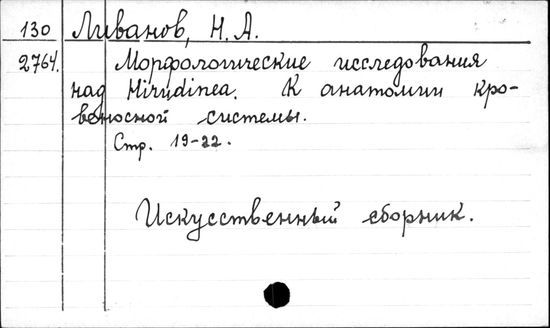 130 Ливанов, Н. А.
2764. Морфологические исследования
над Hirudinea. К анатомии кро-
веносной системы.
Стр. 19-22.
Искусственный сборник.